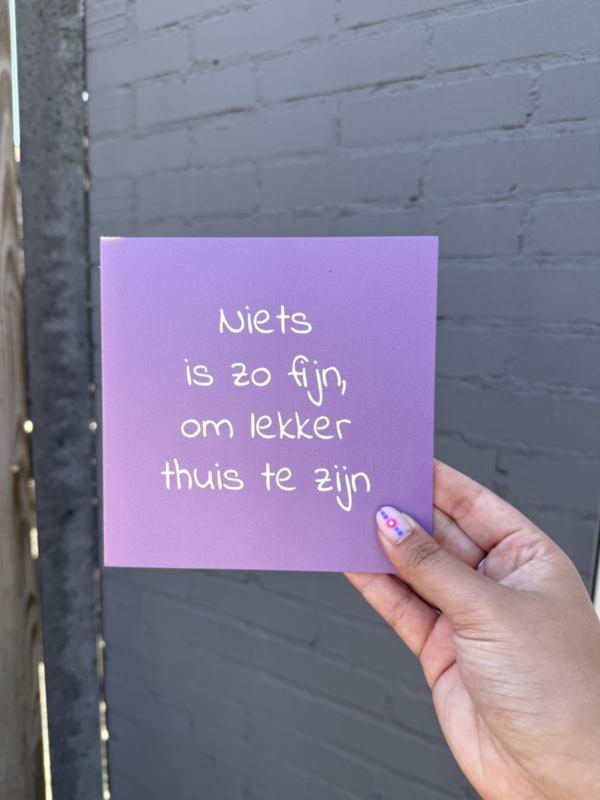 Niets
is zo fijn,
om lekker
thuis te zijn